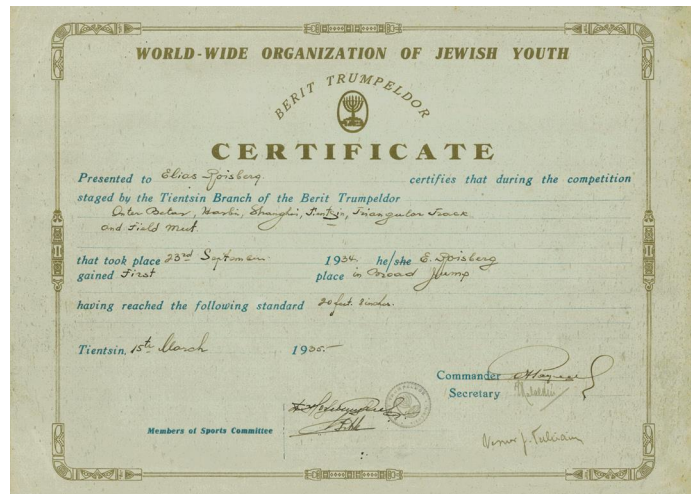 WORLD-WIDE ORGANIZATION OF JEWISH YOUTH
BERIT TRUMPELDOR
CERTIFICATE
Presented to Elias Spisberg certifies that during the competition
staged by the Tientsin Branch of the Berit Trumpeldor
Inter Betar, Harbi, Shanghi, Tientsin, Triangular Track
and Field Meet.
that took place 23rd September 1934. he/she E. Spisberg
gained First place in Broad Jump
having reached the following standard 20 feet.
Tientsin. 15th March 1935.-
Commander
Secretary
Members of Sports Committee